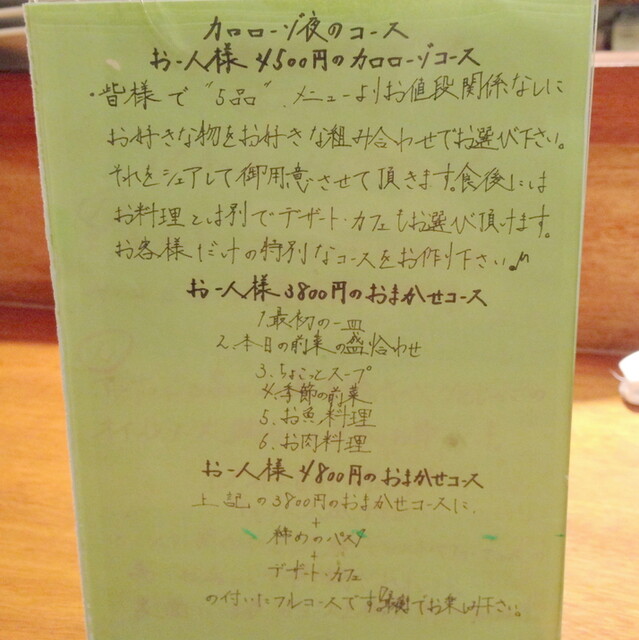 カロローゾ夜のコース
お一人様4500円のカロローゾコース
・皆様で"5品"、メニューよりお値段関係なしに
お好きな物をお好きな組み合わせでお選び下さい。
それをシェアして御用意させて頂きます。食後には
お料理とは別でデザート・カフェもお選び頂けます。
お客様だけの特別なコースをお作り下さい♪
お一人様3800円のおまかせコース
1.最初の一皿
2.本日の前菜の盛合わせ
3.ちょこっとスープ
4.季節の前菜
5.お魚料理
6.お肉料理
お一人様4800円のおまかせコース
上記の3800円のおまかせコースに、
+
締めのパスタ
+
デザート・カフェ
の付いたフルコースです。でお楽しみ下さい。